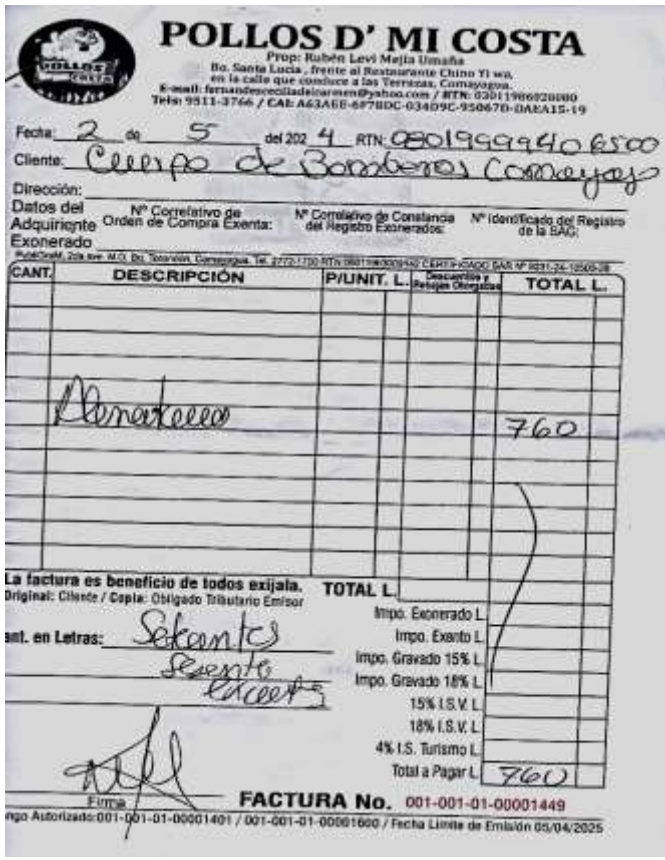 POLLOS D' MI COSTA
POLLOS
COSTA
Prop: Rubén Levi Mejia Umaña
Bo. Santa Lucia, frente al Restaurante Chino Yi wa,
en la calle que conduce a las Terrazas, Comayagua.
Tels: 9511-3766 / CAI: A63AEE-6F7BDC-034D9C-95067D-DAEA15-19
Fecha: 2 de 5 del 2024 RTN:
Cliente: Cuerpo de Bomberos Comayagua
Dirección:
Datos del Adquiriente Exonerado
Nº Correlativo de Orden de Compra Exenta:
Nº Correlativo de Constancia del Registro Exonerados:
Nº Identificado del Registro de la SAG:
CANT. DESCRIPCIÓN P/UNIT. L. Descuentos y Rebajas Otorgadas TOTAL L.
760
La factura es beneficio de todos exijala.
Original: Cliente / Copia: Obligado Tributario Emisor
TOTAL L.
Impo. Exonerado L
Impo. Exento L
ant. en Letras:
Impo. Gravado 15% L
Impo. Gravado 18% L
15% I.S.V. L
18% I.S.V. L
4% I.S. Turismo L
Total a Pagar L 760
Firma
FACTURA No. 001-001-01-00001449
ngo Autorizado:001-001-01-00001401 / 001-001-01-00001600 / Fecha Limite de Emisión 05/04/2025